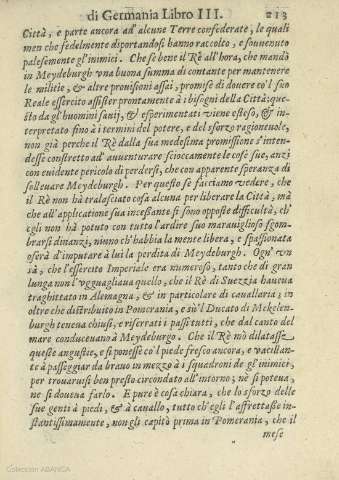 di Germania Libro III. 213
Città, e parte ancora ad'alcune Terre confederate, le quali
men che fedelmente diportandosi hanno raccolto, e souuenuto
palesemente gl'inimici. Che se bene il Rè all'hora, che mandò
in Meydeburgh vna buona summa di contante per mantenere
le militie, & altre prouisioni assai, promise di douere co'l suo
Reale essercito assister prontamente à i bisogni della Città: que-
sto da gl'huomini sanij, & esperimentati viene esteso, & in-
terpretato fino à i termini del potere, e del sforzo ragioneuole,
non già perche il Rè dalla sua medesima promissione s'inten-
desse constretto ad'auuenturare scioccamente le cose sue, anzi
con euidente pericolo di perdersi, che con apparente speranza di
solleuare Meydeburgh. Per questo se facciamo vedere, che
il Rè non hà tralasciato cosà alcuna per liberare la Città, mà
che all'applicatione sua incessante si sono opposte difficultà, ch'
egli non hà potuto con tutto l'ardire suo marauiglioso sgom-
brarsi dinanzi, niuno ch'habbia la mente libera, e spassionata
oserà d'imputare à lui la perdita di Meydeburgh. Ogn' vn
sà, che l'essercito Imperiale era numeroso, tanto che di gran
lunga non l'vgguagliaua quello, che il Rè di Suezzia haueua
traghittato in Alemagna, & in particolare di cauallaria; in
oltre che distribuito in Pomerania, e sù'l Ducato di Mekelen-
burgh teneua chiusi, e riserrati i passi tutti, che dal canto del
mare conduceuano à Meydeburgo. Che il Rè nò dilatasse
queste angustie, e si ponesse cò'l piede fresco ancora, e vacillan-
te à passeggiar da brauo in mezzo à i squadroni de gl'inimici,
per trouaruisi ben presto circondato all'intorno; nè si poteua,
ne si doueua farlo. E pure è cosà chiara, che lo sforzo delle
sue genti à piedi, & à cauallo, tutto ch'egli l'affrettasse in-
stantissimamente, non gli capitò prima in Pomerania, che il
mese
Colección ABANCA